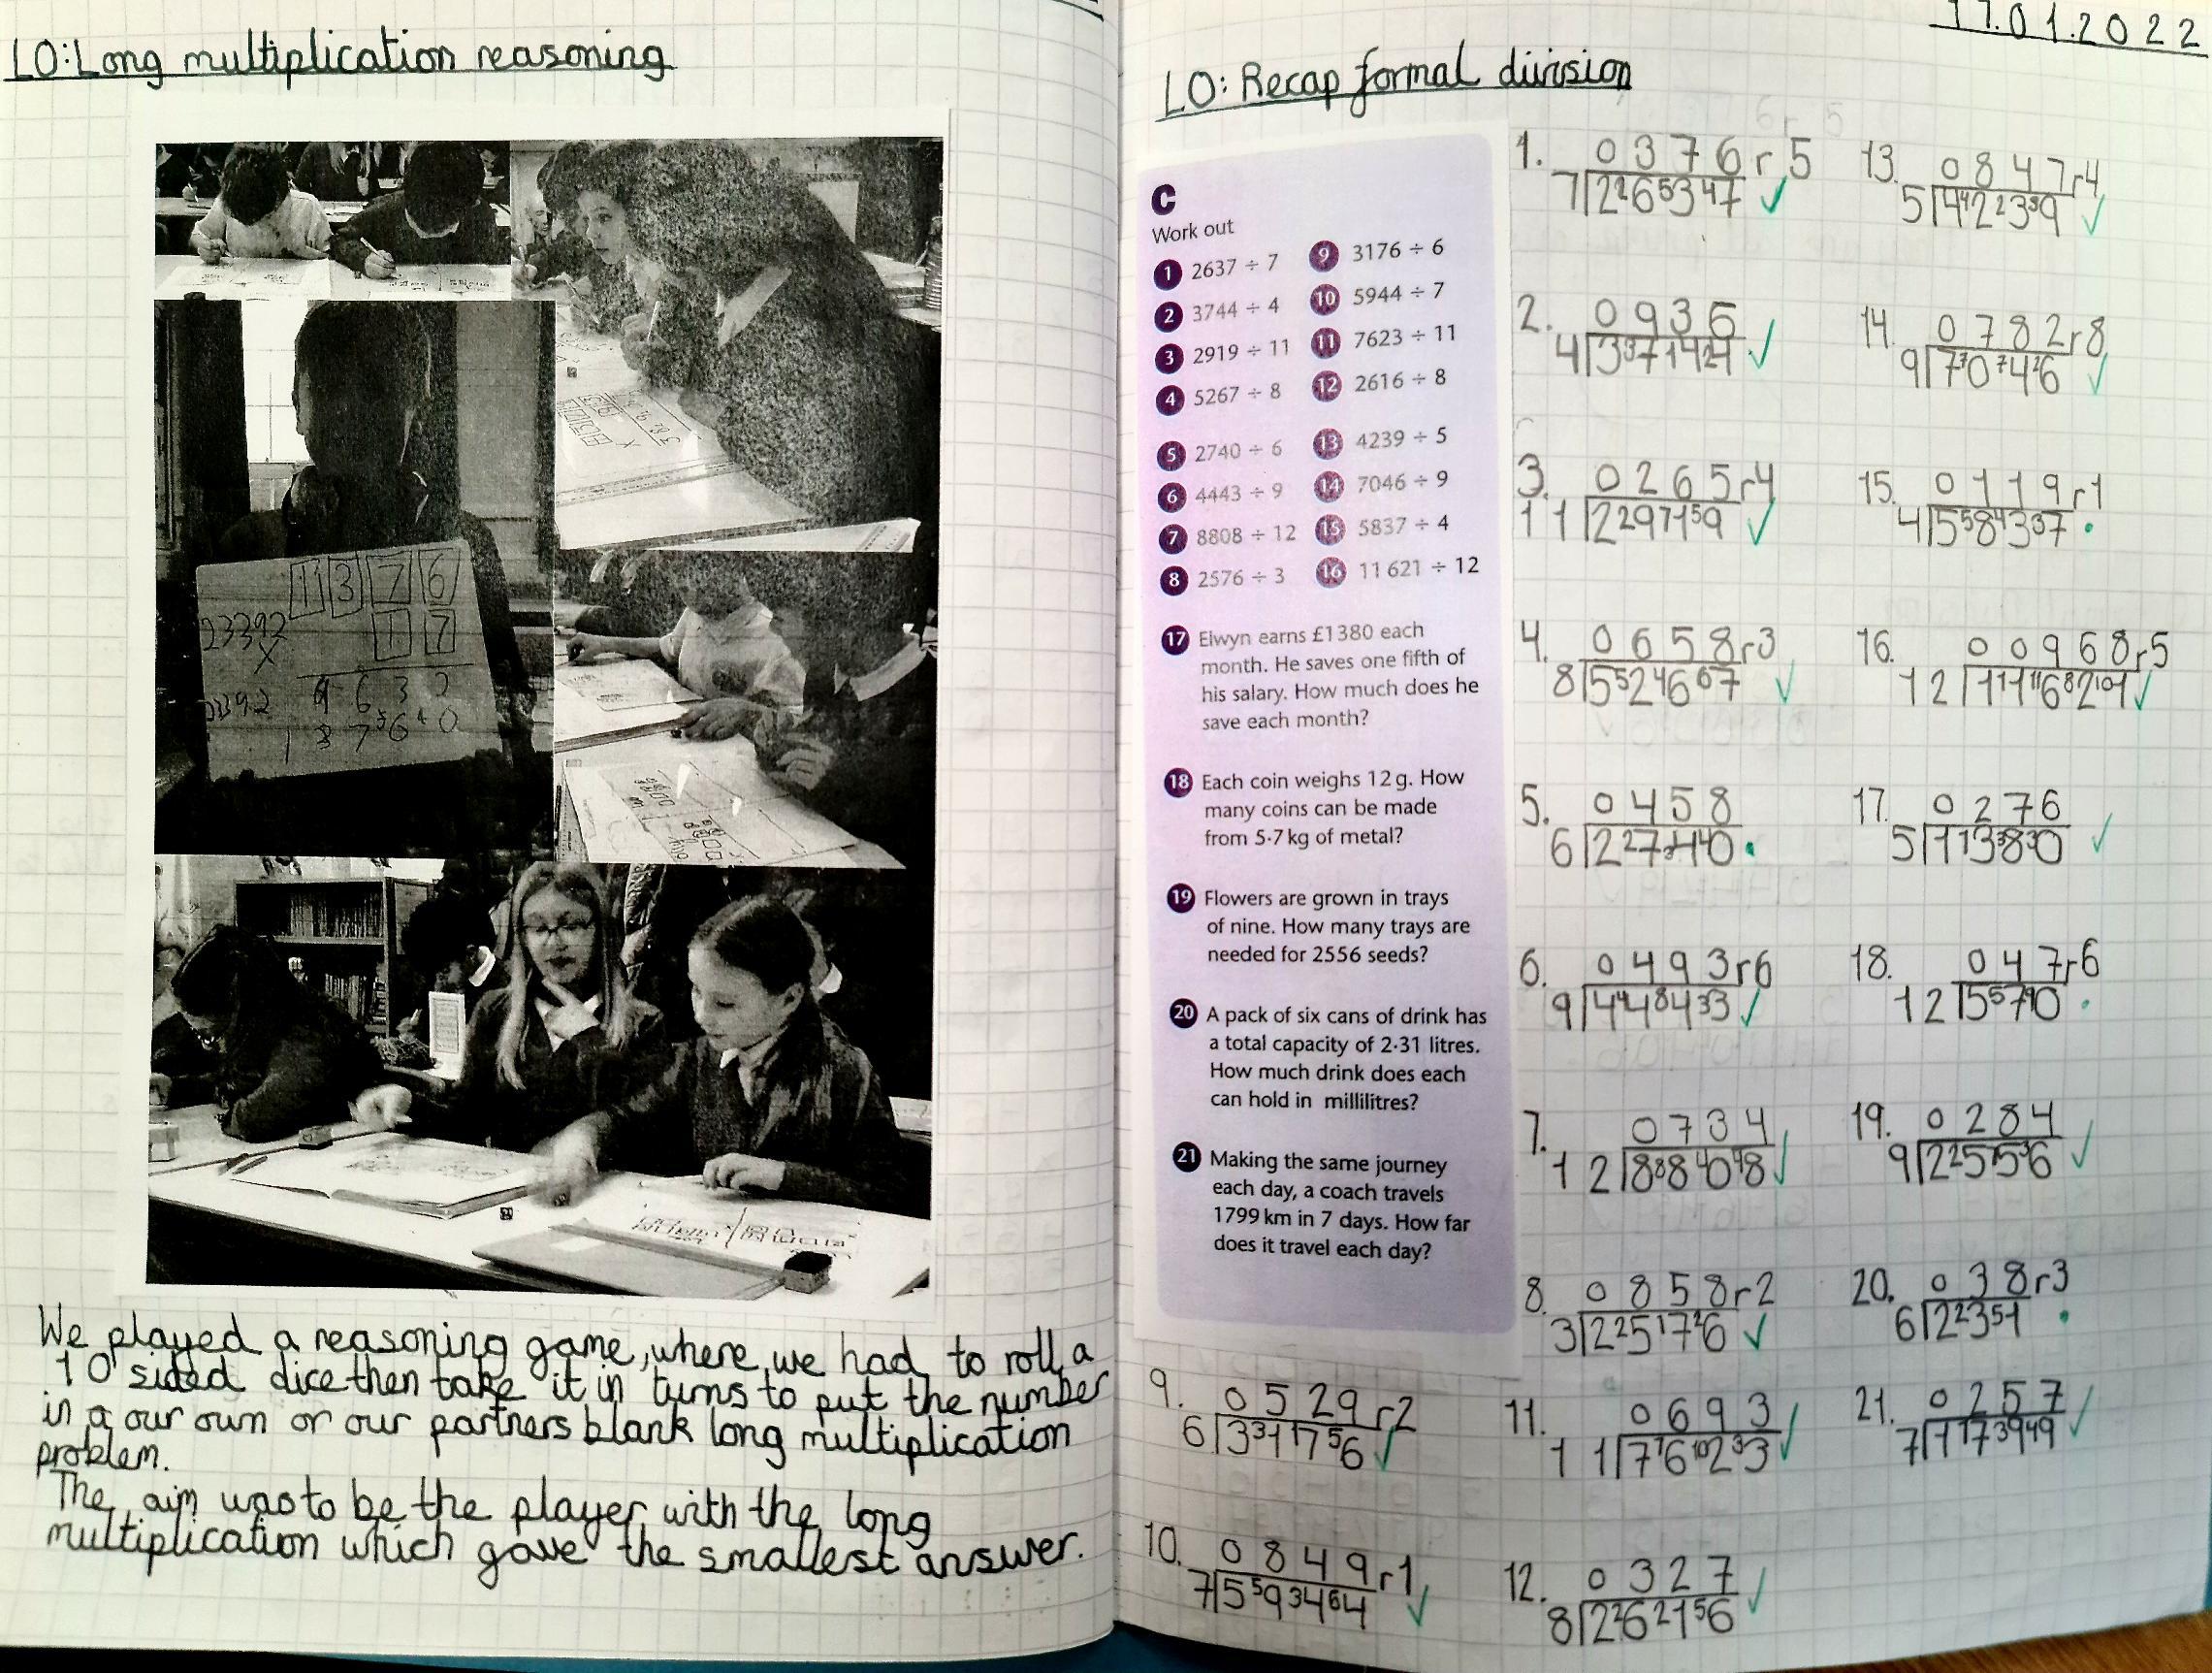 LO: Long multiplication reasoning
1 3 7 6
23392
1 7
X
9 6 3 2
We played a reasoning game, where we had to roll a
10 sided dice then take it in turns to put the number
in a our own or our partners blank long multiplication
problem.
The aim was to be the player with the long
multiplication which gave the smallest answer.
17.01.2022
LO: Recap formal division
C
Work out
1 2637 ÷ 7
2 3744 ÷ 4
3 2919 ÷ 11
4 5267 ÷ 8
5 2740 ÷ 6
6 4443 ÷ 9
7 8808 ÷ 12
8 2576 ÷ 3
9 3176 ÷ 6
10 5944 ÷ 7
11 7623 ÷ 11
12 2616 ÷ 8
13 4239 ÷ 5
14 7046 ÷ 9
15 5837 ÷ 4
16 11 621 ÷ 12
17 Elwyn earns £1380 each
month. He saves one fifth of
his salary. How much does he
save each month?
18 Each coin weighs 12 g. How
many coins can be made
from 5·7 kg of metal?
19 Flowers are grown in trays
of nine. How many trays are
needed for 2556 seeds?
20 A pack of six cans of drink has
a total capacity of 2·31 litres.
How much drink does each
can hold in millilitres?
21 Making the same journey
each day, a coach travels
1799 km in 7 days. How far
does it travel each day?
1. 0 3 7 6 r 5
7 2 26 53 47
2. 0 9 3 6
4 3 37 14 24
3. 0 2 6 5 r4
11 2 29 71 59
4. 0 6 5 8 r3
8 5 52 46 67
5. 0 4 5 8
6 2 27 34 40
6. 0 4 9 3 r6
9 4 44 84 33
7. 0 7 3 4
12 8 88 40 48
8. 0 8 5 8 r2
3 2 25 17 26
9. 0 5 2 9 r2
6 3 31 17 56
10. 0 8 4 9 r1
7 5 59 34 64
11. 0 6 9 3
11 7 76 102 33
12. 0 3 2 7
8 2 26 21 56
13. 0 8 4 7 r4
5 4 42 23 39
14. 0 7 8 2 r8
9 7 70 74 26
15. 0 1 1 9 r1
4 5 58 43 37
16. 0 0 9 6 8 r5
12 1 11 116 82 101
17. 0 2 7 6
5 1 13 38 30
18. 0 4 7 r6
12 5 57 90
19. 0 2 8 4
9 2 25 75 36
20. 0 3 8 r3
6 2 23 51
21. 0 2 5 7
7 1 17 39 49